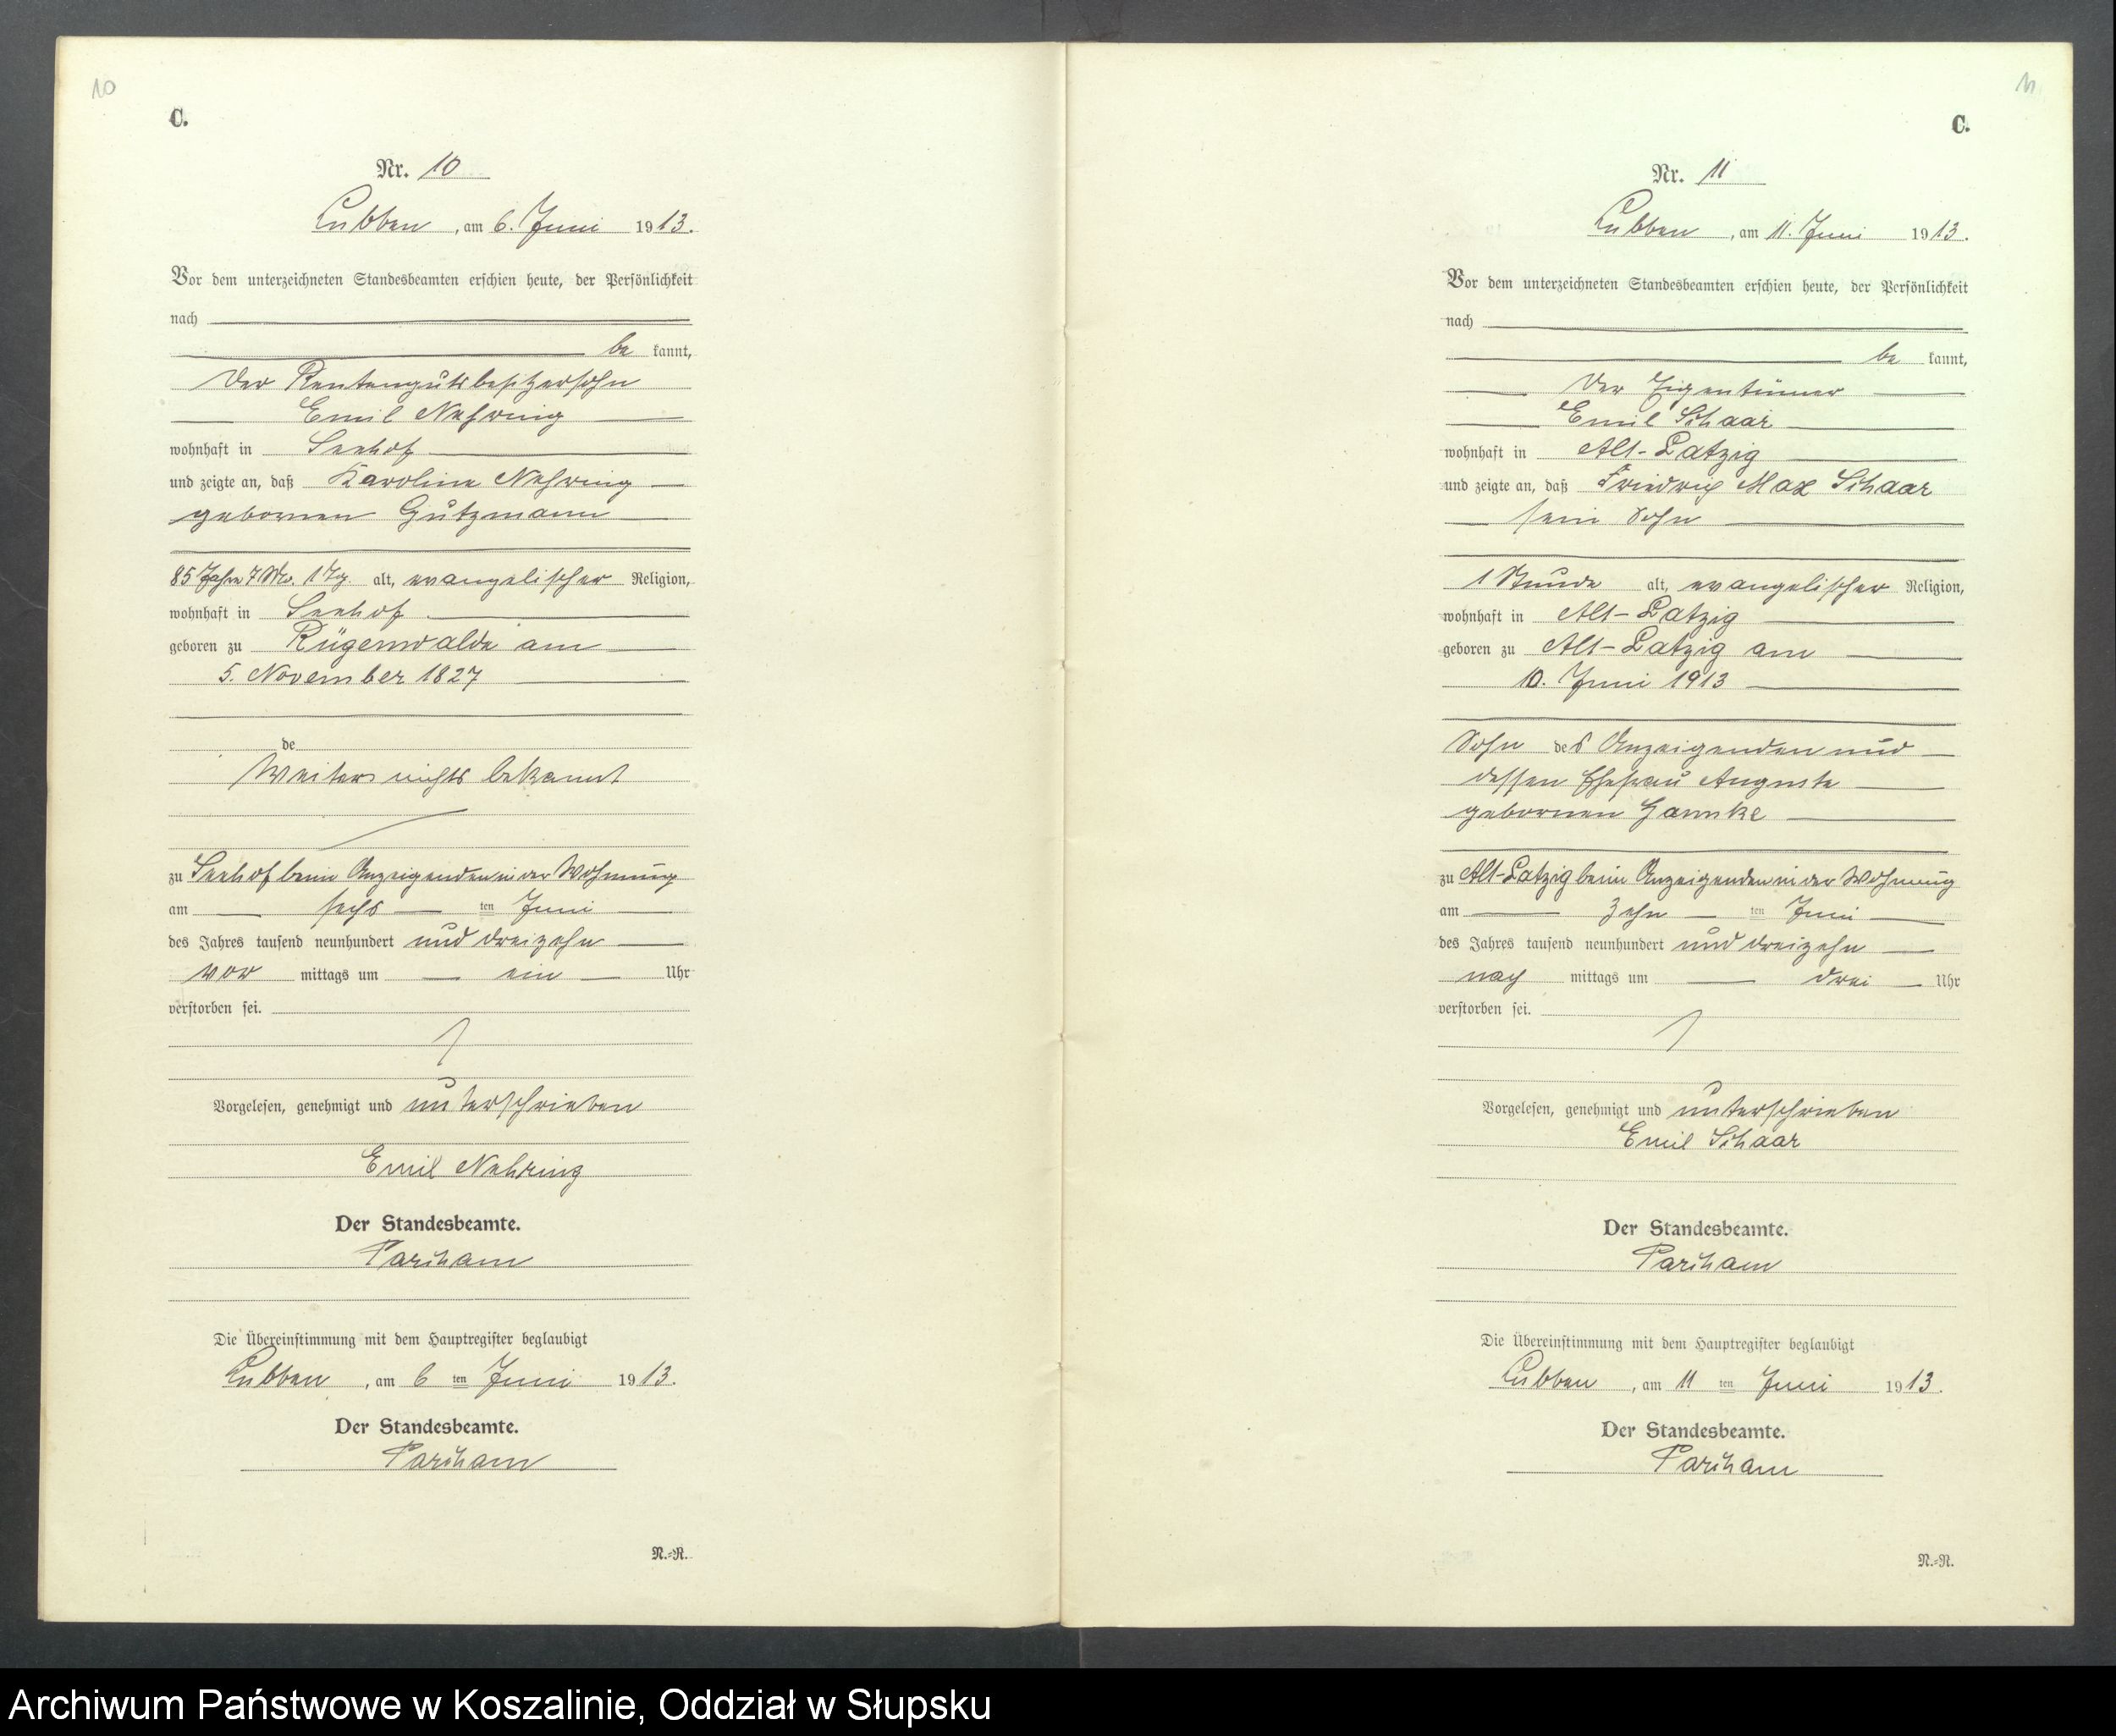 10
C.
Nr. 10
Lubben, am 6. Juni 1913.
Vor dem unterzeichneten Standesbeamten erschien heute, der Persönlichkeit
nach
be kannt,
der Rentengutsbesitzersohn
Emil Nehring
wohnhaft in Seehof
und zeigte an, daß Karoline Nehring
gebornen Gutzmann
85 Jahre 7 Mo. 1 Tg. alt, evangelischer Religion,
wohnhaft in Seehof
geboren zu Rügenwalde am
5. November 1827
de
Weiters nichts bekannt
zu Seehof beim Anzeigenden in der Wohnung
am sechs ten Juni
des Jahres tausend neunhundert und dreizehn
vor mittags um ein Uhr
verstorben sei.
Vorgelesen, genehmigt und unterschrieben
Emil Nehring
Der Standesbeamte.
Parcham
Die Übereinstimmung mit dem Hauptregister beglaubigt
Lubben, am 6 ten Juni 1913.
Der Standesbeamte.
Parcham
N.-R.
11
C.
Nr. 11
Lubben, am 11. Juni 1913.
Vor dem unterzeichneten Standesbeamten erschien heute, der Persönlichkeit
nach
be kannt,
der Eigentümer
Emil Schaar
wohnhaft in Alt-Latzig
und zeigte an, daß Friedrich Max Schaar
sein Sohn
1 Stunde alt, evangelischer Religion,
wohnhaft in Alt-Latzig
geboren zu Alt-Latzig am
10. Juni 1913
Sohn des Anzeigenden und
dessen Ehefrau Auguste
gebornen
zu Alt-Latzig beim Anzeigenden in der Wohnung
am zehn ten Juni
des Jahres tausend neunhundert und dreizehn
nach mittags um drei Uhr
verstorben sei.
Vorgelesen, genehmigt und unterschrieben
Emil Schaar
Der Standesbeamte.
Parcham
Die Übereinstimmung mit dem Hauptregister beglaubigt
Lubben, am 11 ten Juni 1913.
Der Standesbeamte.
Parcham
N.-R.
Archiwum Państwowe w Koszalinie, Oddział w Słupsku